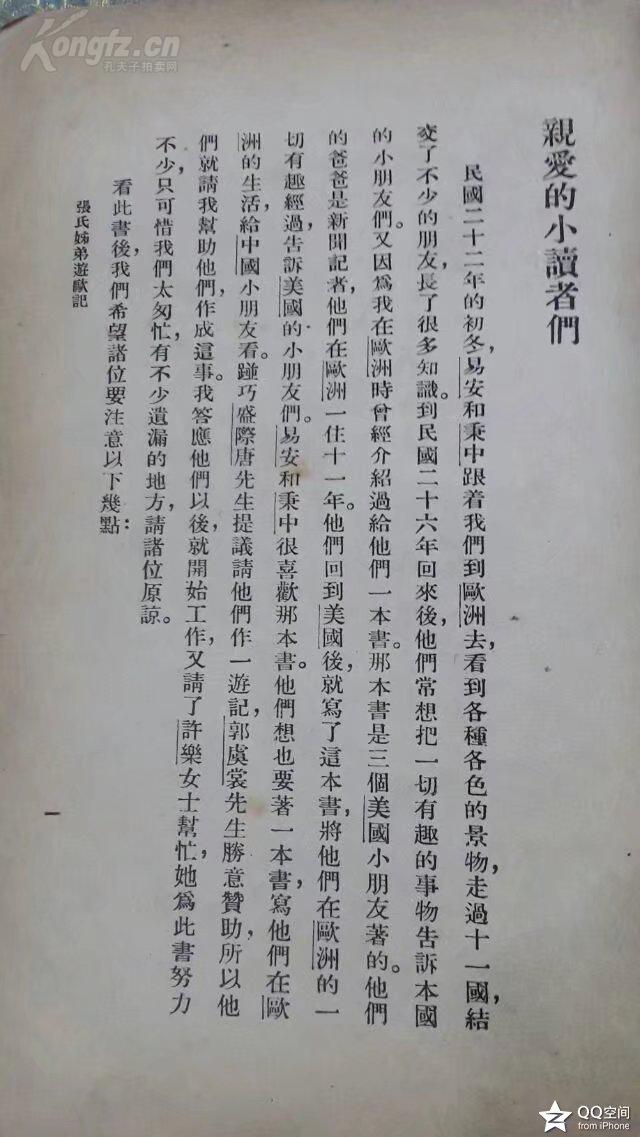 親愛的小讀者們
民國二十二年的初冬，易安和秉中跟着我們到歐洲去，看到各種各色的景物，走過十一國，結
交了不少的朋友，長了很多知識。到民國二十六年回來後，他們常想把一切有趣的事物告訴本國
的小朋友們。又因爲我在歐洲時曾經介紹過給他們一本書。那本書是三個美國小朋友著的。他們
的爸爸是新聞記者，他們在歐洲一住十一年。他們回到美國後，就寫了這本書，將他們在歐洲的一
切有趣經過，告訴美國的小朋友們。易安和秉中很喜歡那本書。他們想也要著一本書，寫他們在歐
洲的生活給中國小朋友看。踫巧盛際唐先生提議請他們作一遊記，郭虞裳先生勝意贊助，所以他
們就請我幫助他們，作成這事。我答應他們以後，就開始工作，又請了許樂女士幫忙，她爲此書努力
不少，只可惜我們太匆忙，有不少遺漏的地方，請諸位原諒。
看此書後，我們希望諸位要注意以下幾點：
張氏姊弟遊歐記
一
Kongfz.cn
孔夫子拍卖网
QQ空间
from iPhone